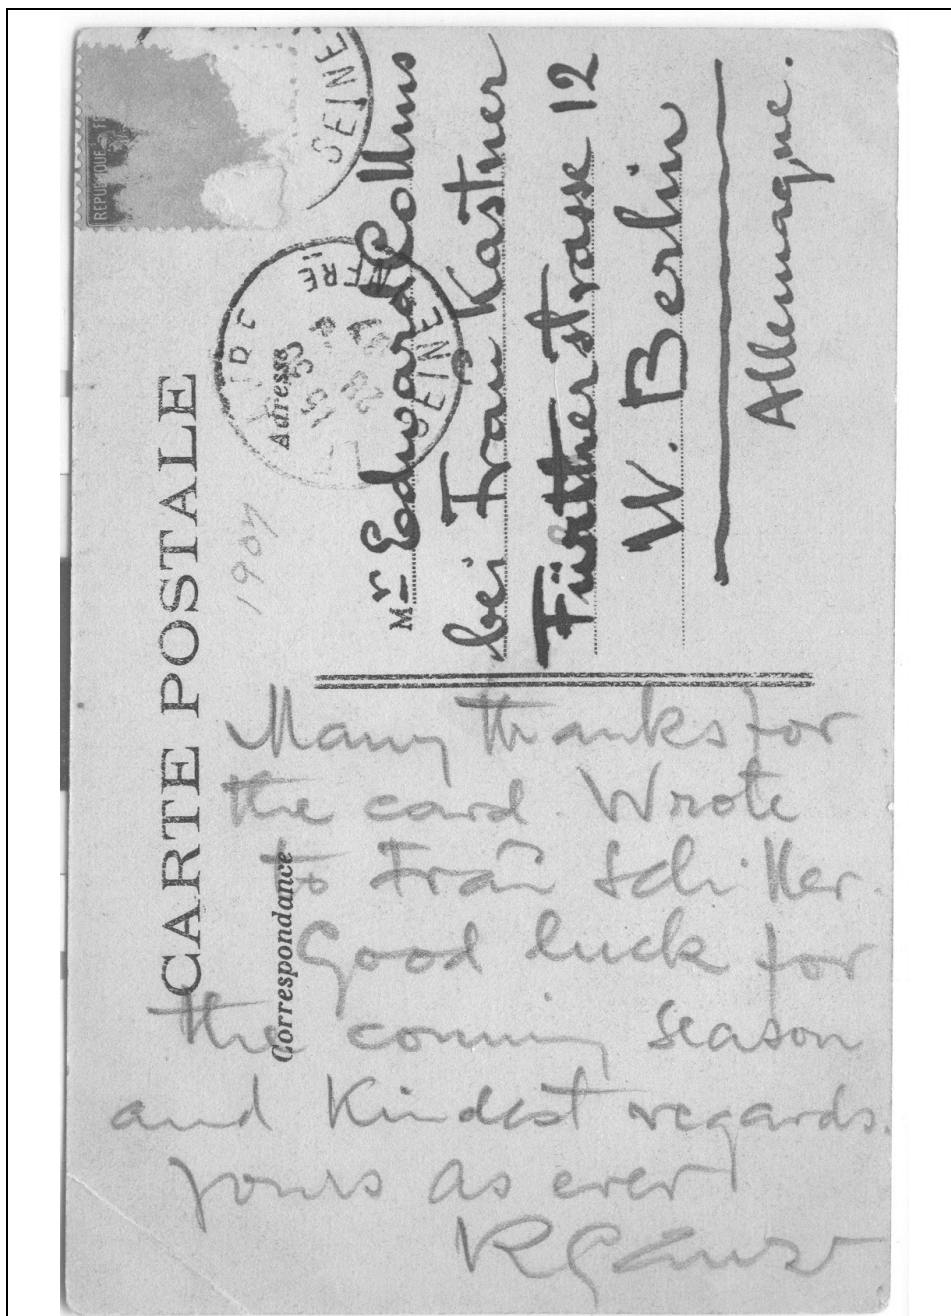 CARTE POSTALE
Correspondance
Adresse
REPUBLIQUE
SEINE
SEINE
1907
Mr Edward Collins
bei Frau Kastner
Fürtherstrasse 12
W. Berlin
Allemagne.
Many thanks for
the card. Wrote
to Frau Schiller.
Good luck for
the coming season
and kindest regards.
yours as ever